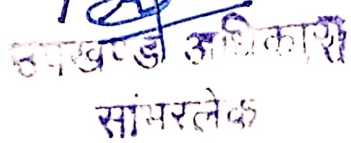 उपखण्ड अधिकारी
सांभरलेक